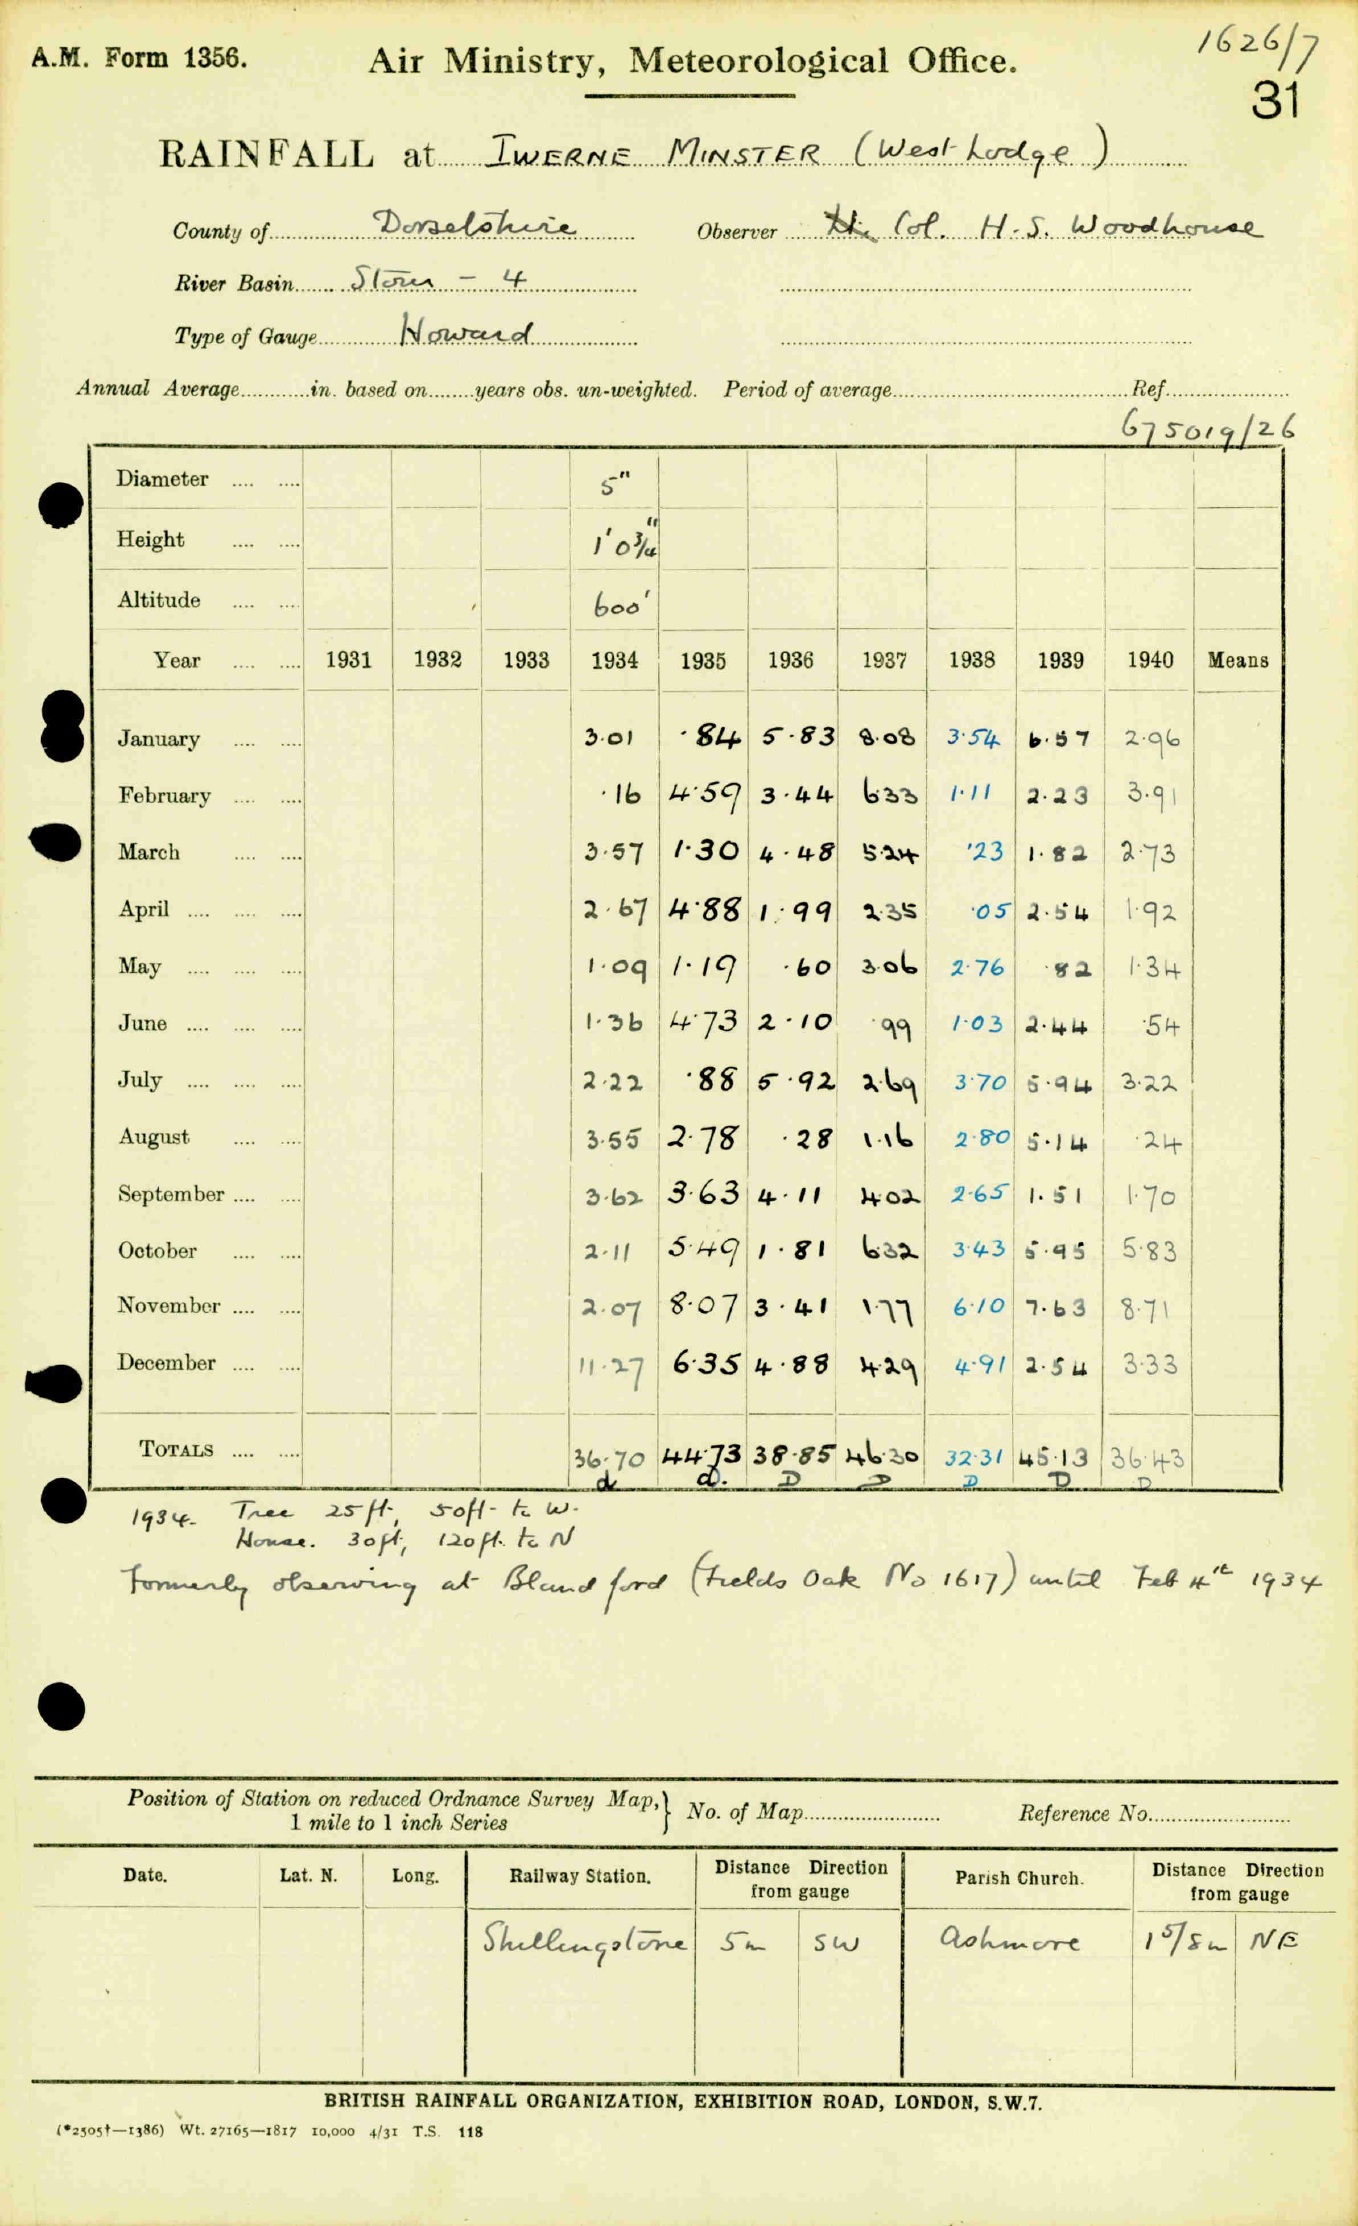 A.M. Form 1356.
Air Ministry, Meteorological Office.
1626/7
31
RAINFALL at IWERNE MINSTER (West Lodge)
County of Dorsetshire Observer Lt. Col. H.S. Woodhouse
River Basin Stour - 4
Type of Gauge Howard
Annual Average in. based on years obs. un-weighted. Period of average Ref.
675019/26
Diameter .... .... 5"
Height .... .... 1'0¾"
Altitude .... .... 600'
Year .... .... 1931 1932 1933 1934 1935 1936 1937 1938 1939 1940 Means
January .... .... 3.01 .84 5.83 8.08 3.54 6.57 2.96
February .... .... .16 4.59 3.44 6.33 1.11 2.23 3.91
March .... .... 3.57 1.30 4.48 5.24 .23 1.82 2.73
April .... .... .... 2.67 4.88 1.99 2.35 .05 2.54 1.92
May .... .... .... 1.09 1.19 .60 3.06 2.76 .82 1.34
June .... .... .... 1.36 4.73 2.10 .99 1.03 2.44 .54
July .... .... .... 2.22 .88 5.92 2.69 3.70 5.94 3.22
August .... .... 3.55 2.78 .28 1.16 2.80 5.14 .24
September .... .... 3.62 3.63 4.11 4.02 2.65 1.51 1.70
October .... .... 2.11 5.49 1.81 6.32 3.43 5.95 5.83
November .... .... 2.07 8.07 3.41 1.77 6.10 7.63 8.71
December .... .... 11.27 6.35 4.88 4.29 4.91 2.54 3.33
TOTALS .... .... 36.70 44.73 38.85 46.30 32.31 45.13 36.43
d d. D D D D D
1934. Tree 25ft, 50ft. to W.
House. 30ft, 120ft. to N
Formerly observing at Blandford (Fields Oak No 1617) until Feb 4th 1934
Position of Station on reduced Ordnance Survey Map, } No. of Map Reference No.
1 mile to 1 inch Series
Date. Lat. N. Long. Railway Station. Distance Direction from gauge Parish Church. Distance Direction from gauge
Shillingstone 5m SW Ashmore 1 5/8m NE
BRITISH RAINFALL ORGANIZATION, EXHIBITION ROAD, LONDON, S.W.7.
(*2505†—1386) Wt. 27165—1817 10,000 4/31 T.S. 118